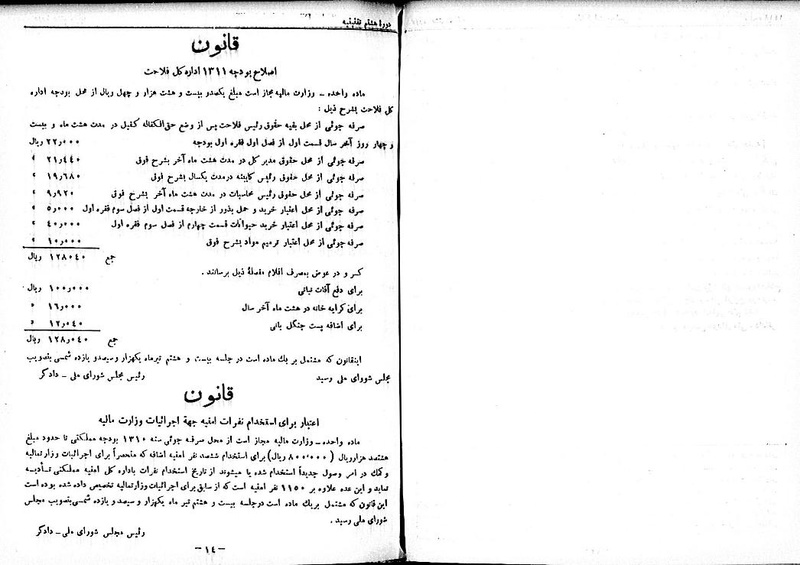 دورهٔ هشتم تقنینیه
قانون
اصلاح بودجه ۱۳۱۱ اداره کل فلاحت
ماده واحده – وزارت مالیه مجاز است مبلغ یکصدو بیست و هشت هزار و چهل ریال از محل بودجه اداره
کل فلاحت بشرح ذیل :
صرفه جوئی از محل بقیه حقوق رئیس فلاحت پس از وضع حق‌الکفاله کفیل در مدت هشت ماه و بیست
و چهار روز آخر سال قسمت اول از فصل اول فقره اول بودجه ۲۲٫۰۰۰ ریال
صرفه جوئی از محل حقوق مدیر کل در مدت هشت ماه آخر بشرح فوق ۲۱٫۴۴۰ »
صرفه جوئی از محل حقوق رئیس کابینه درمدت یکسال بشرح فوق ۱۹٫۶۸۰ »
صرفه جوئی از محل حقوق رئیس محاسبات در مدت هشت ماه آخر بشرح فوق ۹٫۹۲۰ »
صرفه جوئی از محل اعتبار خرید و حمل بذور از خارجه قسمت اول از فصل سوم فقره اول ۵٫۰۰۰ »
صرفه جوئی از محل اعتبار خرید حیوانات قسمت چهارم از فصل سوم فقره اول ۴۰٫۰۰۰ »
صرفه جوئی از محل اعتبار ترمیم مواد بشرح فوق ۱۰٫۰۰۰ »
جمع ۱۲۸۰۴۰ ریال
کسر و در عوض بمصرف اقلام مفصلهٔ ذیل برسانند .
برای دفع آفات نباتی ۱۰۰٫۰۰۰ ریال
برای کرایه خانه در هشت ماه آخر سال ۱۶٫۰۰۰ »
برای اضافه پست جنگل بانی ۱۲٫۰۴۰ »
جمع ۱۲۸٫۰۴۰ ریال
اینقانون که مشتمل بر یك ماده است در جلسه بیست و هشتم تیرماه یکهزار وسیصدو یازده شمسی بتصویب
مجلس شورای ملی رسید رئیس مجلس شورای ملی – دادگر
قانون
اعتبار برای استخدام نفرات امنیه جهة اجرائیات وزارت مالیه
ماده واحده – وزارت مالیه مجاز است از محل صرفه جوئی سنه ۱۳۱۰ بودجه مملکتی تا حدود مبلغ
هشتصد هزارریال (۸۰۰٬۰۰۰ ریال) برای استخدام ششصد نفر امنیه اضافه که منحصراً برای اجرائیات وزارتمالیه
و کمك در امر وصول جدیداً استخدام شده یا میشوند از تاریخ استخدام نفرات باداره کل امنیه مملکتی تأدیه
نماید و این عده علاوه بر ۱۱۵۰ نفر امنیه است که از سابق برای اجرائیات وزارتمالیه تخصیص داده شده بوده است
این قانون که مشتمل بر یك ماده است درجلسه بیست و هشتم تیر ماه یکهزار و سیصد و یازده شمسی بتصویب مجلس
شورای ملی رسید .
رئیس مجلس شورای ملی – دادگر
– ١٤ –